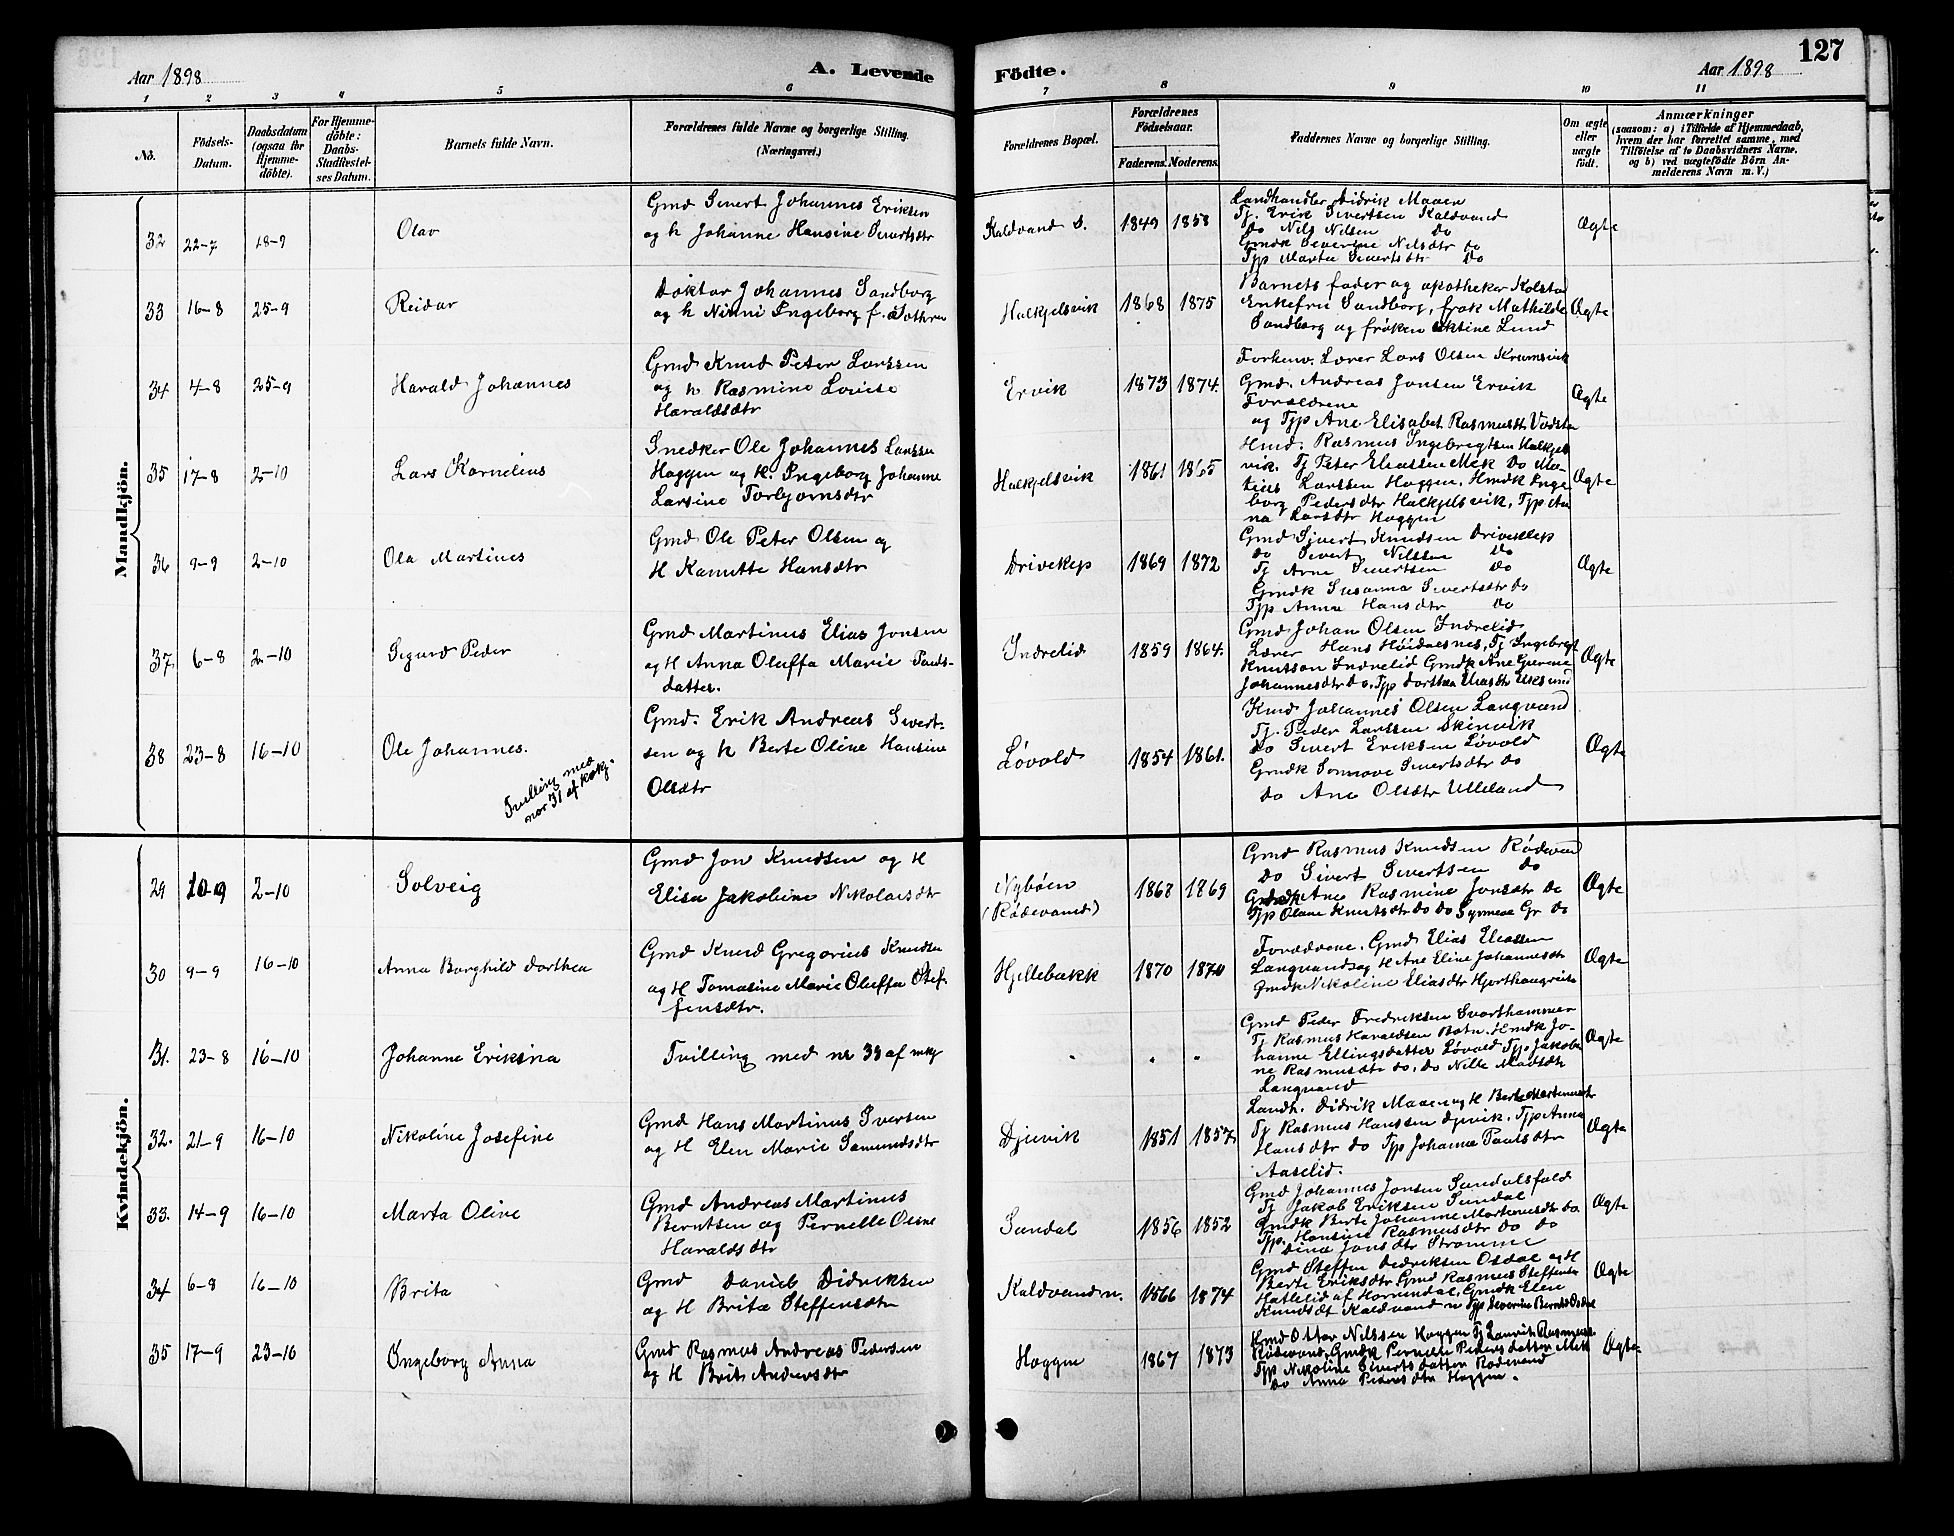 Aar 1898
A. Levende
Födte.
Aar 1898
127
1 2 3 4 5 6 7 8 9 10 11
No.
Födsels-Datum.
Daabsdatum (ogsaa for Hjemme-döbte).
For Hjemme-döbte: Daabs-Stadfæstel-ses Datum.
Barnets fulde Navn.
Forældrenes fulde Navne og borgerlige Stilling. (Næringsvei.)
Forældrenes Bopæl.
Forældrenes Födselsaar.
Faderens. Moderens.
Faddernes Navne og borgerlige Stilling.
Om ægte eller uægte født.
Anmærkninger
(saasom: a) i Tilfælde af Hjemmedaab,
hvem der har forrettet samme, med
Tilföielse af to Daabsvidners Navne,
og b) ved uægtefödte Börn An-
melderens Navn m. V.)
Mandkjön.
32 22-7 18-9 Olav
Gmd Sivert Johannes Eriksen
og h Johanne Hansine Sivertsdtr
Kaldvand S. 1849 1858
Landhandler Didrik Maaen
Tj. Erik Sivertsen Kaldvand
do Nils Nilsen do
Gmdk Severine Nilsdtr do
Tjp Marta Sivertsdtr do
Ægte
33 16-8 25-9 Reidar
Doktor Johannes Sandborg
og h Ninni Ingeborg f.
Halkjelsvik 1868 1875
Barnets fader og apotheker Kolstad
Enkefru Sandborg, frøk Mathilde
Sandborg og frøken Lund
Ægte
34 4-8 25-9 Harald Johannes
Gmd Knud Peter Larssen
og h Rasmine Lovise
Haraldsdtr
Ervik 1873 1874.
Forhenv. Lærer Lars Olsen Krumsvik
Gmd. Andreas Jonsen Ervik
Forældrene
og Tjp Ane Elisabet Rasmusdtr
Ægte
35 17-8 2-10 Lars Kornelius
Snedker Ole Johannes Larssen
Haggen og h. Ingeborg Johanne
Larsine Torbjørnsdtr
Halkjelsvik 1861 1865
Hmd. Rasmus Ingebrigtsen Halkjels
vik. Tj Peter Eliassen Mek do Ma-
tias Larssen Haggen, Hmdk Inge
borg Pedersdtr Halkjelsvik, Tjp An
na Larsdtr Haggen
Ægte
36 9-9 2-10 Ola Martines
Gmd Ole Peter Olsen og
H Kanutte Hansdtr
Driveklep 1869 1872
Gmd Sjvert Knudsen Driveklep
do Sivert Nilssen do
Tj Arne Sivertsen do
Gmdk Susanna Sivertsdtr do
Tjp Anna Hansdtr do
Ægte
37. 6-8 2-10 Sigurd Peder
Gmd Martinus Elias Jonsen
og H Anna Oluffa Marie Pauls-
datter.
Indrelid 1859 1864.
Gmd Johan Olsen Indrelid
Lærer Hans Høidalsnes, Tj Ingebrigt
Knutson Indrelid Gmdk Ane
Johannesdtr do. Tjp Dorthea Eliasdtr Eiksund
Ægte
38 23-8 16-10 Ole Johannes.
Tvilling med
nor 31 af kvkj.
Gmd. Erik Andreas Sivert-
sen og h Berte Oline Hansine
Olsdtr
Løvold 1854 1861.
Kmd Johannes Olsen Langvand
Tj. Peder Larssen Skinvik
do Sivert Eriksen Løvold
Gmdk Sonnove Sivertsdtr do
do Ane Olsdtr Ulleland
Ægte
Kvindekjön.
29 10-9 2-10 Solveig
Gmd Jon Knudsen og H
Elisa Jakobine Nikolaisdtr
Nybøen
(Rødevand) 1868 1869
Gmd Rasmus Knudsen Rødevand
do Sivert Sivertsen do
Gmdk Ane Rasmine Jonsdtr do
Tjp Olane Knutsdtr do do Synneve Gr do
Ægte
30 9-9 16-10 Anna Borghild Dorthea
Gmd Knud Gregorius Knudsen
og H Tomasine Marie Oluffa Stef-
fensdtr.
Hjellebakk 1870 1870
Forældrene. Gmd Elias Eliassen
Langvand og H Ane Eline Johannesdtr
Gmdk Nikoline Eliasdtr Hjorthaugvik
Ægte
31. 23-8 16-10 Johanne Eriksina
Tvilling med nr 38 af mkj
Gmd Peder Fredriksen Svarthammer
Tj Rasmus Haraldsen Botn. Hmdk Jo-
hanne Ellingsdatter Løvold Tjp Jakobi
ne Rasmusdtr do, do Nille Madsdtr
Langvand
Ægte
32. 21-9 16-10 Nikoline Josefine
Gmd Hans Martinus Iversen
og H Elen Marie Samundsdtr
Djuvik 1851 1857.
Landh. Didrik Maaen og H Berte Martinusdtr
Tj Rasmus Hanssen Djuvik, Tjp Anna
Hansdtr do Tjp Johanna Paulsdtr
Aaselid.
Ægte
33. 14-9 16-10 Marta Oline
Gmd Andreas Martinus
Berntsen og Pernelle Oline
Haraldsdtr
Sundal 1856 1852
Gmd Johannes Jonsen Sundalsfald
Tj Jakob Eriksen Sundal
Gmdk Berte Johanne Martinusdtr do
Tjp. Hansine Rasmusdtr do do
Dina Jonsdtr Strømme
Ægte
34 6-8 16-10 Brita
Gmd Daniel Didriksen
og H Brita Steffensdtr
Kaldvand n. 1866 1874
Gmd Steffen Didriksen Osdal og H
Berte Eriksdtr Gmd Rasmus Steffensen
Hatlelid af Hornindal, Gmdk Elen
Knudsdt Kaldvand n Tjp Severine Berntsd Osdal
Ægte
35 17-9 23-10 Ingeborg Anna
Gmd Rasmus Andreas Pedersen
og H Brit Andersdtr
Haggen 1867 1873
Hmd Ottar Nilssen Haggen Tj Laurits Rasmuss.
Rødevand. Gmdk Pernelle Pedersdatter Mek
Tjp Nikoline Sivertsdatter Rødevand
do Anna Pedersdtr Haggen.
Ægte